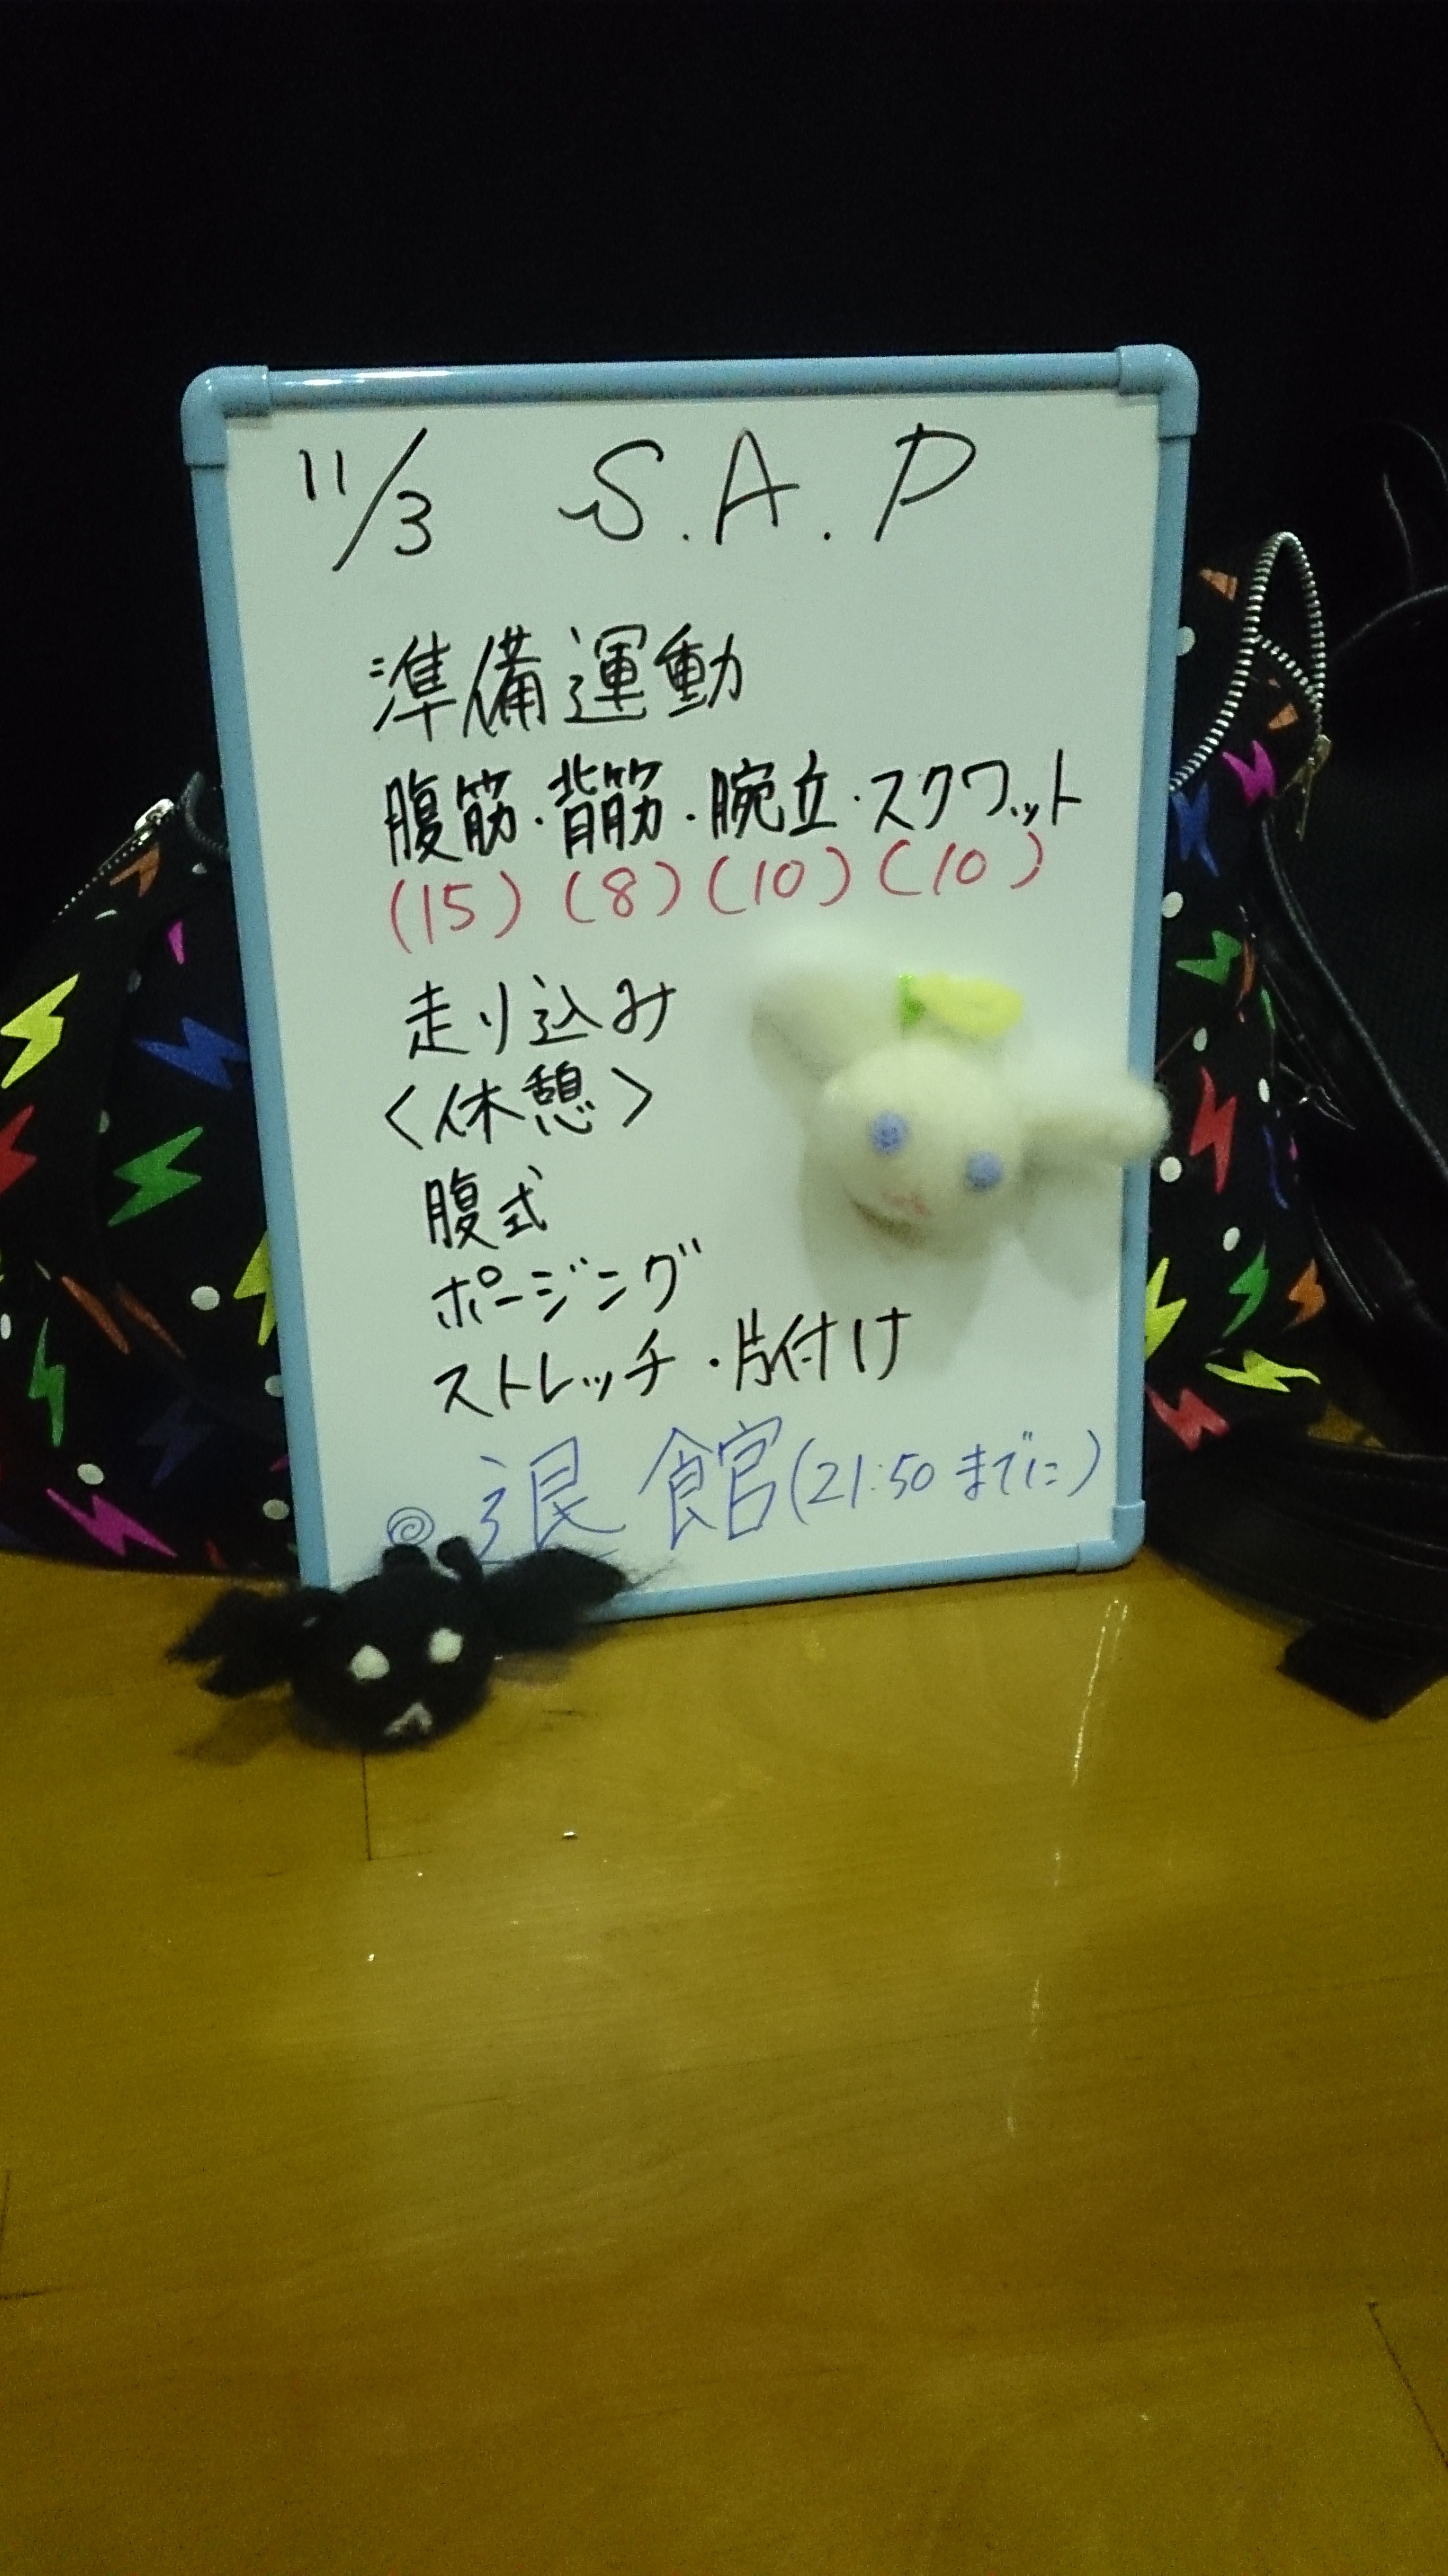 11/3 S.A.P
準備運動
腹筋・背筋・腕立・スクワット
(15) (8) (10) (10)
走り込み
<休憩>
腹式
ポージング
ストレッチ・片付け
◎退館(21:50までに)